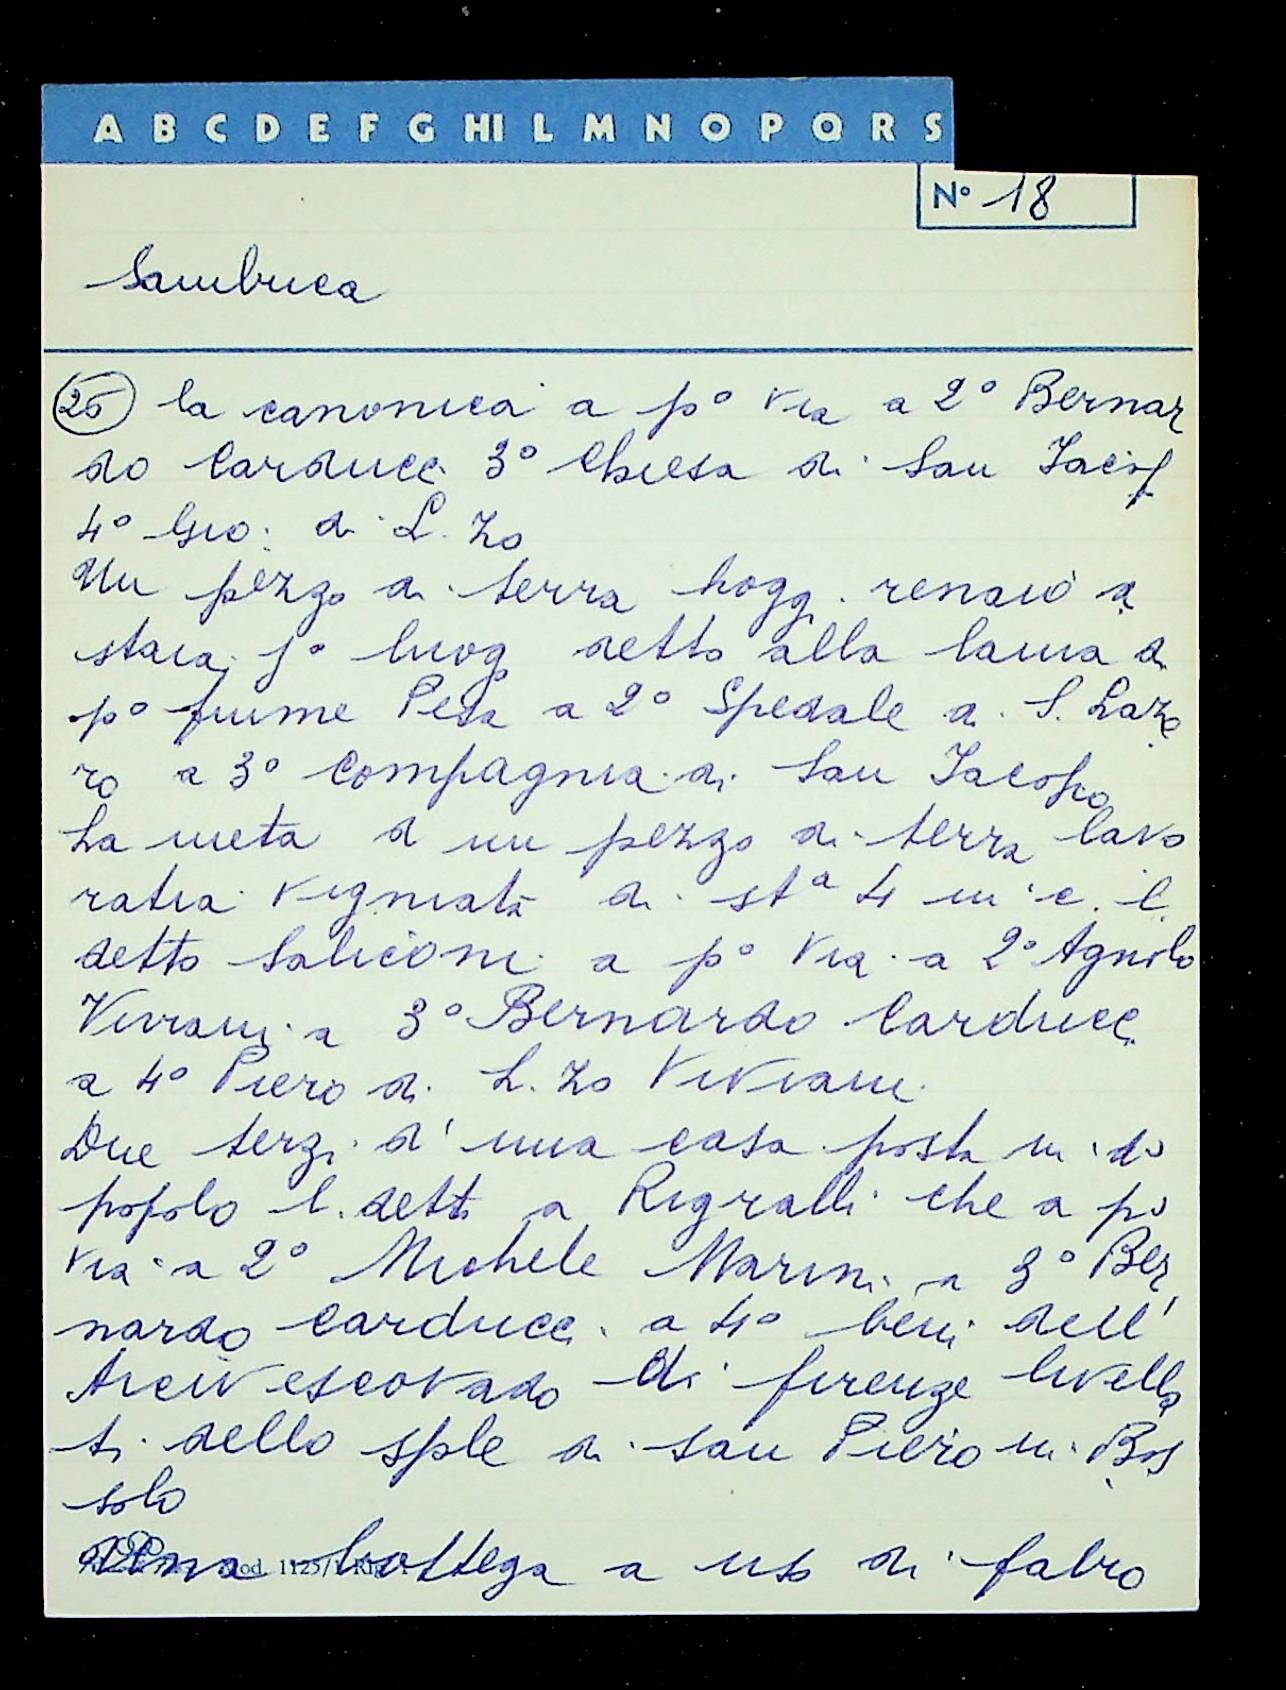 A B C D E F G HI L M N O P Q R S
N° 18
Sambuca
(25) la canonica a p° via a 2° Bernar
do Carducci 3° Chiesa di San Iacop
4° Gio: di L. Zo
Un pezzo di terra hogg. renaio di
staia j° luog detto alla lama da
p° fiume Pesa a 2° Spedale di S. Laza
ro a 3° Compagnia di San Iacopo
La metà d un pezzo di terra lavo
ratia vigniata di st.a 4 in c. l.
detto Salicioni a p° via a 2° Agnilo
Viviani a 3° Bernardo Carducci
a 4° Piero di L. Zo Viviani
Due terzi d' una casa posta in do
popolo l. detto a Rigralli che a po
via a 2° Michele Marini a 3° Ber
nardo Carducci a 4° beni dell'
Arcivescovado di firenze livella
ti dello sple di San Piero in Bos
solo
Una bottega a uso di fabro
od. 1125/